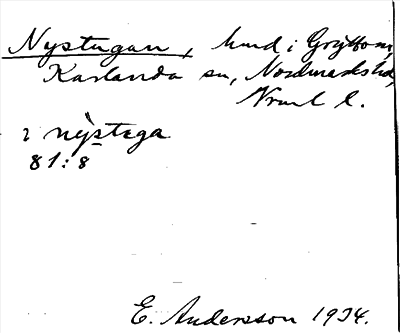 Nystugan, hmd i Gryttom,
Karlanda sn, Nordmarks hd,
Vrml l.
2 nỳstega
81:8
E. Andersson 1934.